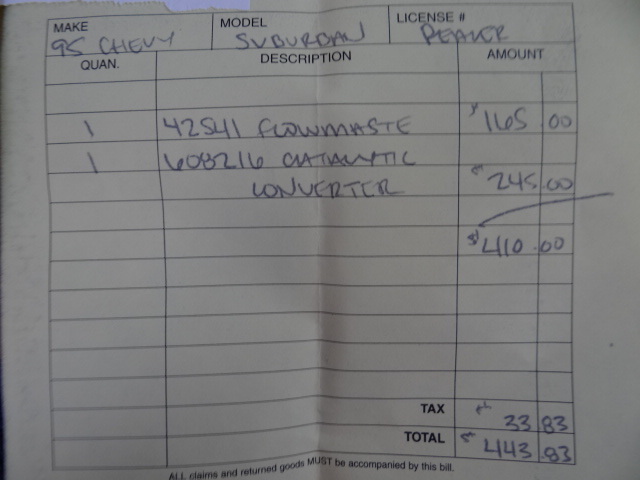 MAKE MODEL LICENSE #
95 CHEVY SUBURBAN REAKER
QUAN. DESCRIPTION AMOUNT
1 42541 FLOWMASTE $165.00
1 608216 CATALYTIC
CONVERTER $245.00
$410.00
TAX $33.83
TOTAL $443.83
ALL claims and returned goods MUST be accompanied by this bill.